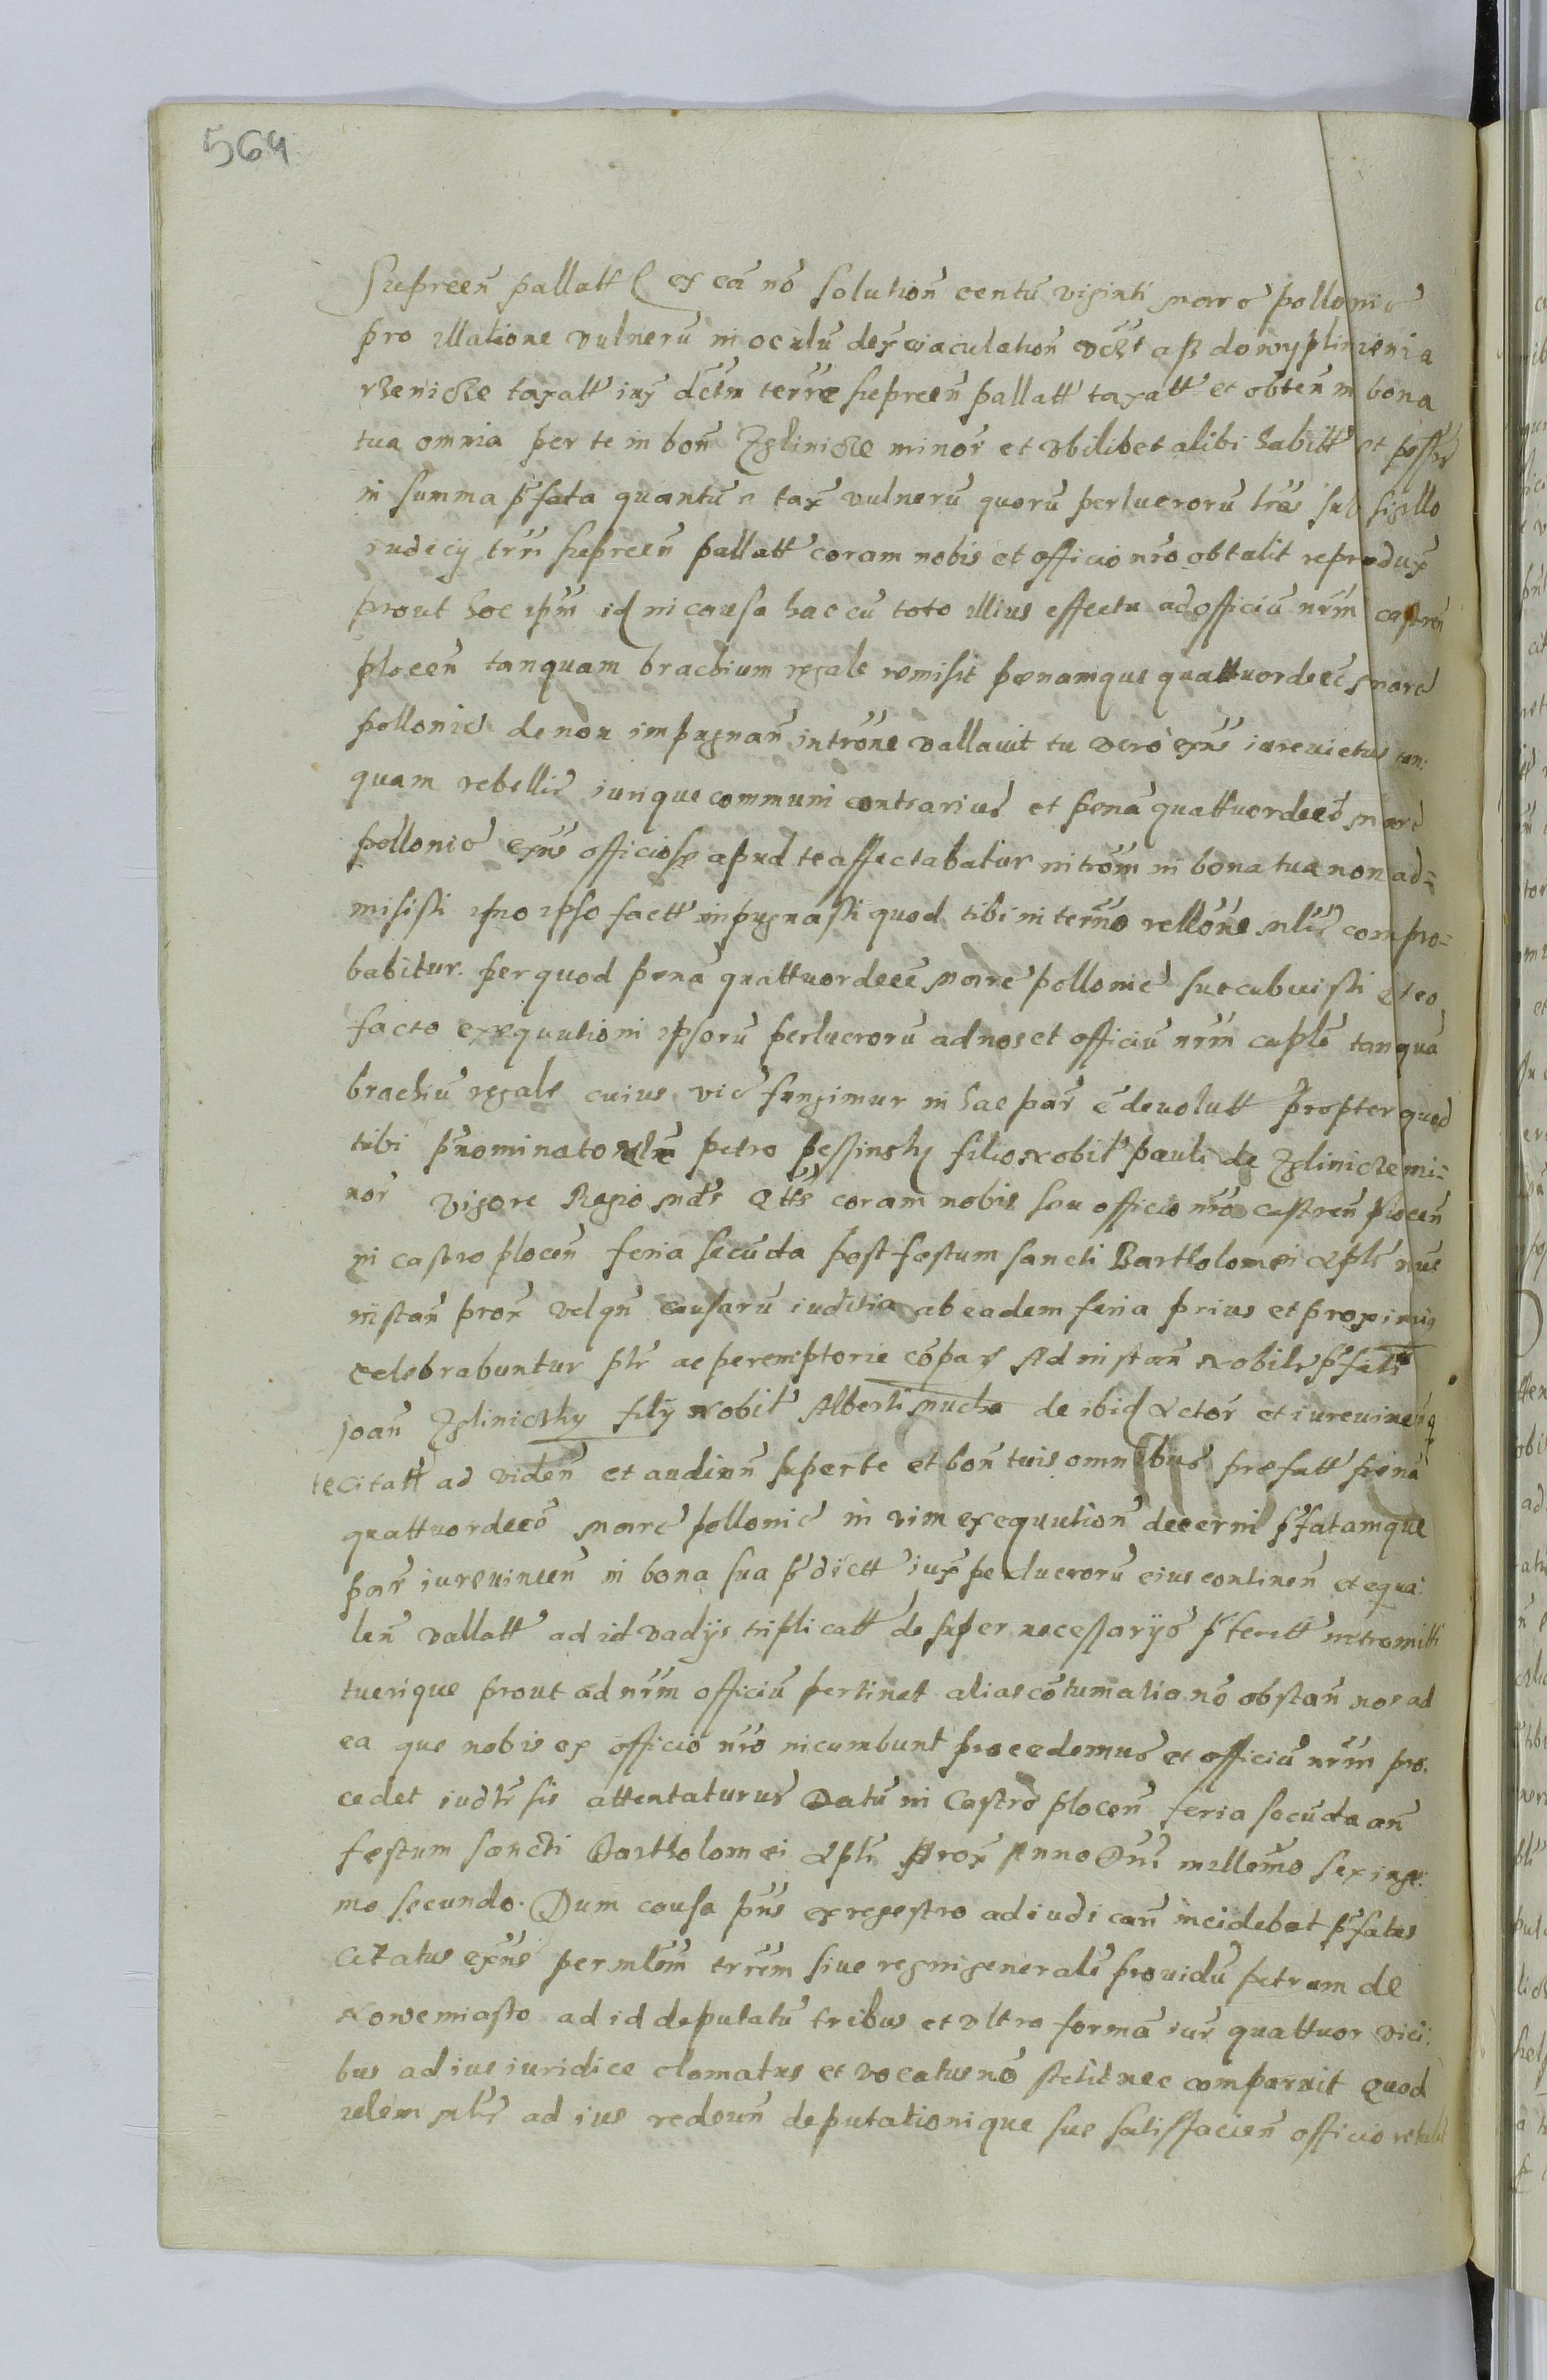 564
Srepreeñ pallatt ex eā nō solutioñ centū viginti marc pollonic
pro illatione vulnerū in oculū dex eiaculatioñ als do wyplinienia
rzenicze taxatt iux terre srepreeñ pallatt taxatt et obteñ in bona
tua omnia per te in boñ Zglinicze minor et vbilibet alibi habitt et possess
in summa p̄fata quantū e tax vulnerū quorū perlucrorū lrās sub sigillo
iudicij trrī srepreeñ pallatt coram nobis et officio nrō obtulit reprodux
prout hoc ipm̄ id in causa hac cū toto illius effectu ad officiū nrm̄ castreñ
ploceñ tanquam brachium regale remisit penamque quattuordecē marc
pollonic de non impugnañ intrōne vallavit tu vero exn̄s iurevictus tan:
quam rebellis iurique communi contrarius et penā quattuordecē marc
pollonic officiose apud te affectabatur intrōm in bona tua non ad=
misisti ymo ipso factt inpugnasti quod tibi in termō rellōne mlīs compro=
babitur. per quod penā quattuordecē marc pollonic succubuisti et eo
facto exequutioni ipsorū perlucrorū ad nos et officiū nrm̄ tanquā
brachiū regale cuius vic fungimur in hac par ē devolutt Propter quod
tibi p̄nominato Petro pessinsky filio nobil pauli de Zglinicze mi=
nor vigore Regio coram nobis seu officio nrō castreñ ploceñ
in castro ploceñ feria secūda post festum sancti Bartholomei Apli nūc
instañ prox vel qñ causarū iuditia ab eadem feria prius et proximius
celebrabuntur ptr ac peremptorie cōpar Ad instañ Nobilis p̄fati
Joañ Zglinicky filij Nobil Alberti mucha de ibid Actor et iurevincñ q
te citatt ad videñ et audieñ super te et boñ tuis omnibus prefatt penā
quattuordecē marc pollonic in vim exequutioñ decerni p̄fatamque
par iurevinceñ in bona sua p̄dictt iux perlucrorū eius contineñ et equa:
leñ vallatt ad id vadijs triplicatt de super necessarijs intromitti
tuerique prout ad nrm̄ officiū pertinet alias cōtumatia nō obstañ nos ad
ea que nobis ex officio nrō incumbunt procedemus et officiū nrm̄ pro:
cedet iudr sis attentaturus Datū in Castro ploceñ feria secūda añ
festum sancti Bartholomei Apli Prox Anno Dni millemo sexinge:
mo secundo. Dum causa pn̄s ex regestro ad iudicañ incidebat p̄fatus
Citatus exn̄s per mlēm trrēm sive regni generalē providū petrum de
Nowemiasto ad id deputatū tribus et vltra formā iur quattuor vici:
bus ad ius iuridice clamatus et vocatus nō stetit nec comparuit Quod
idem mlis ad ius redeuñ deputationique sue satisfacieñ officio retulit